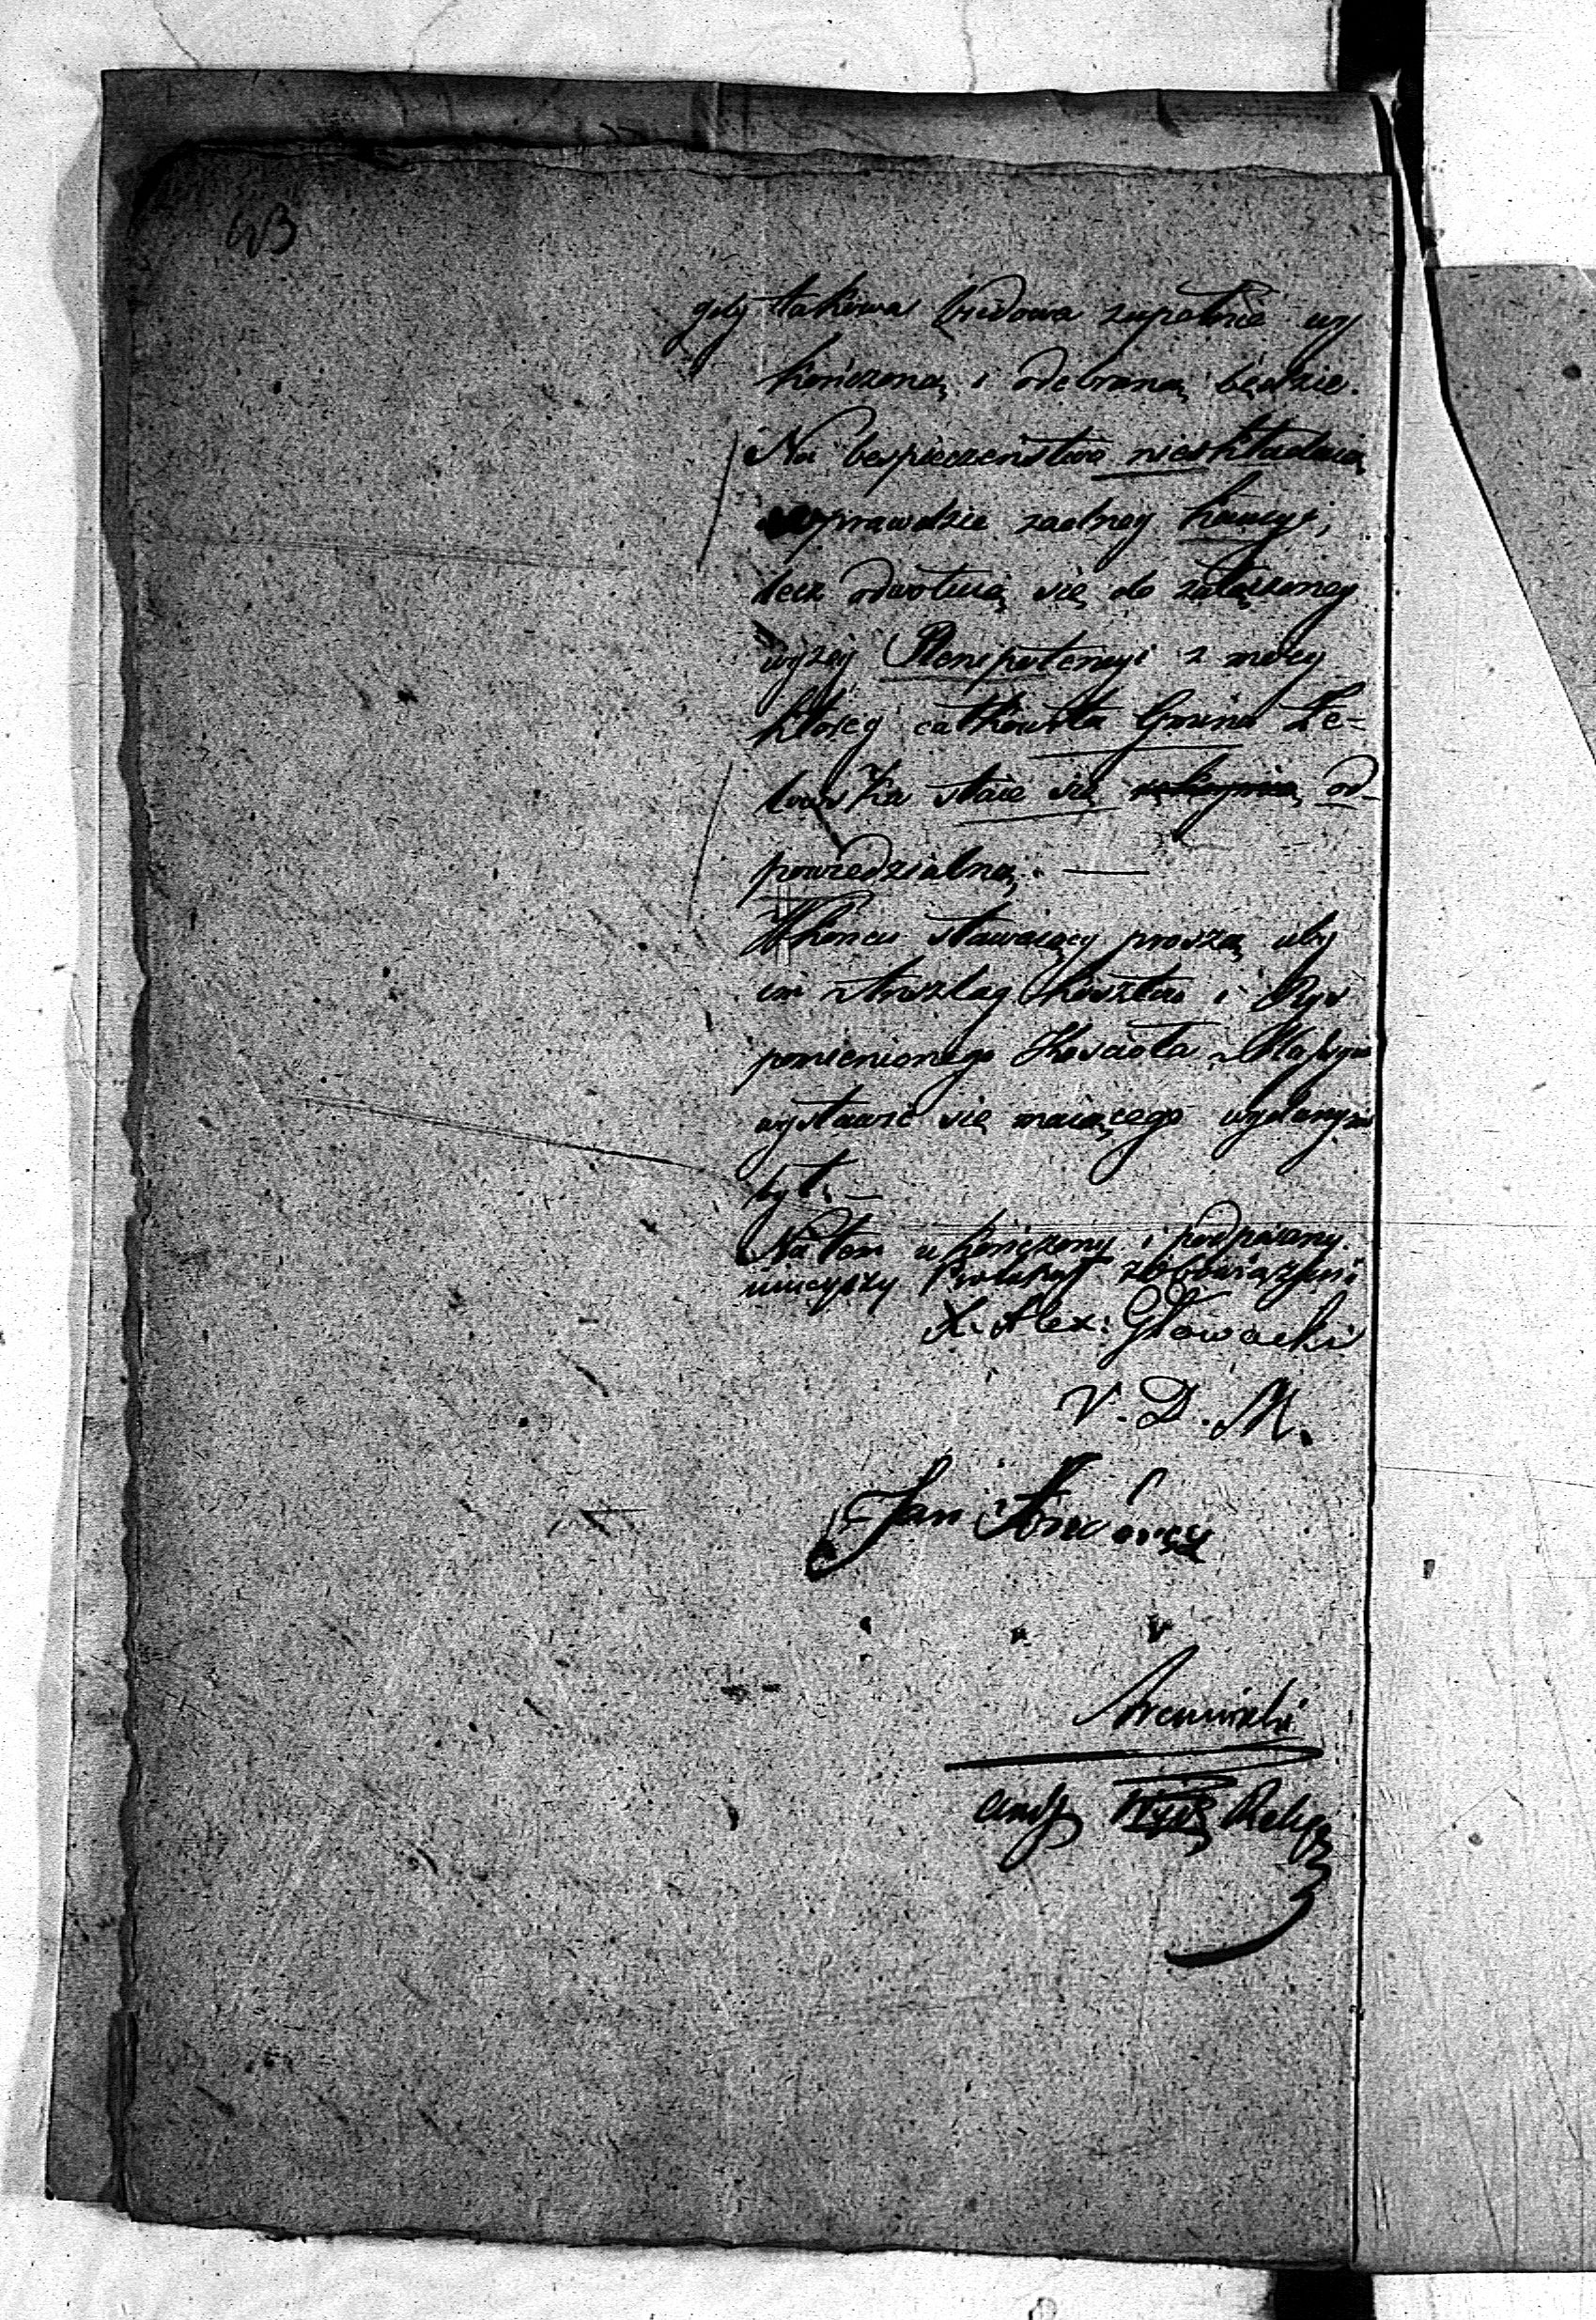 gdy takowa budowa zupełnie wy
kończoną i odebraną będzie.
Na bespieczeństwo nieskładaią
wprawdzie żadney kaucyi,
lecz odwołuią się do załączoney
wyżey Plenipotencyi z mocy
którey całkowita Gmina Ze-
lowska staie się od-
powiedzialną. —
W końcu stawaiący proszą aby
im Anszlag kosztów i Rys
pomienionego Kościoła
wystawić się maiącego wydanym
był. —
Na tem ukończony i podpisany
ninieyszy Protokół
X. Alex: Głowacki
V. D. M.
Jan